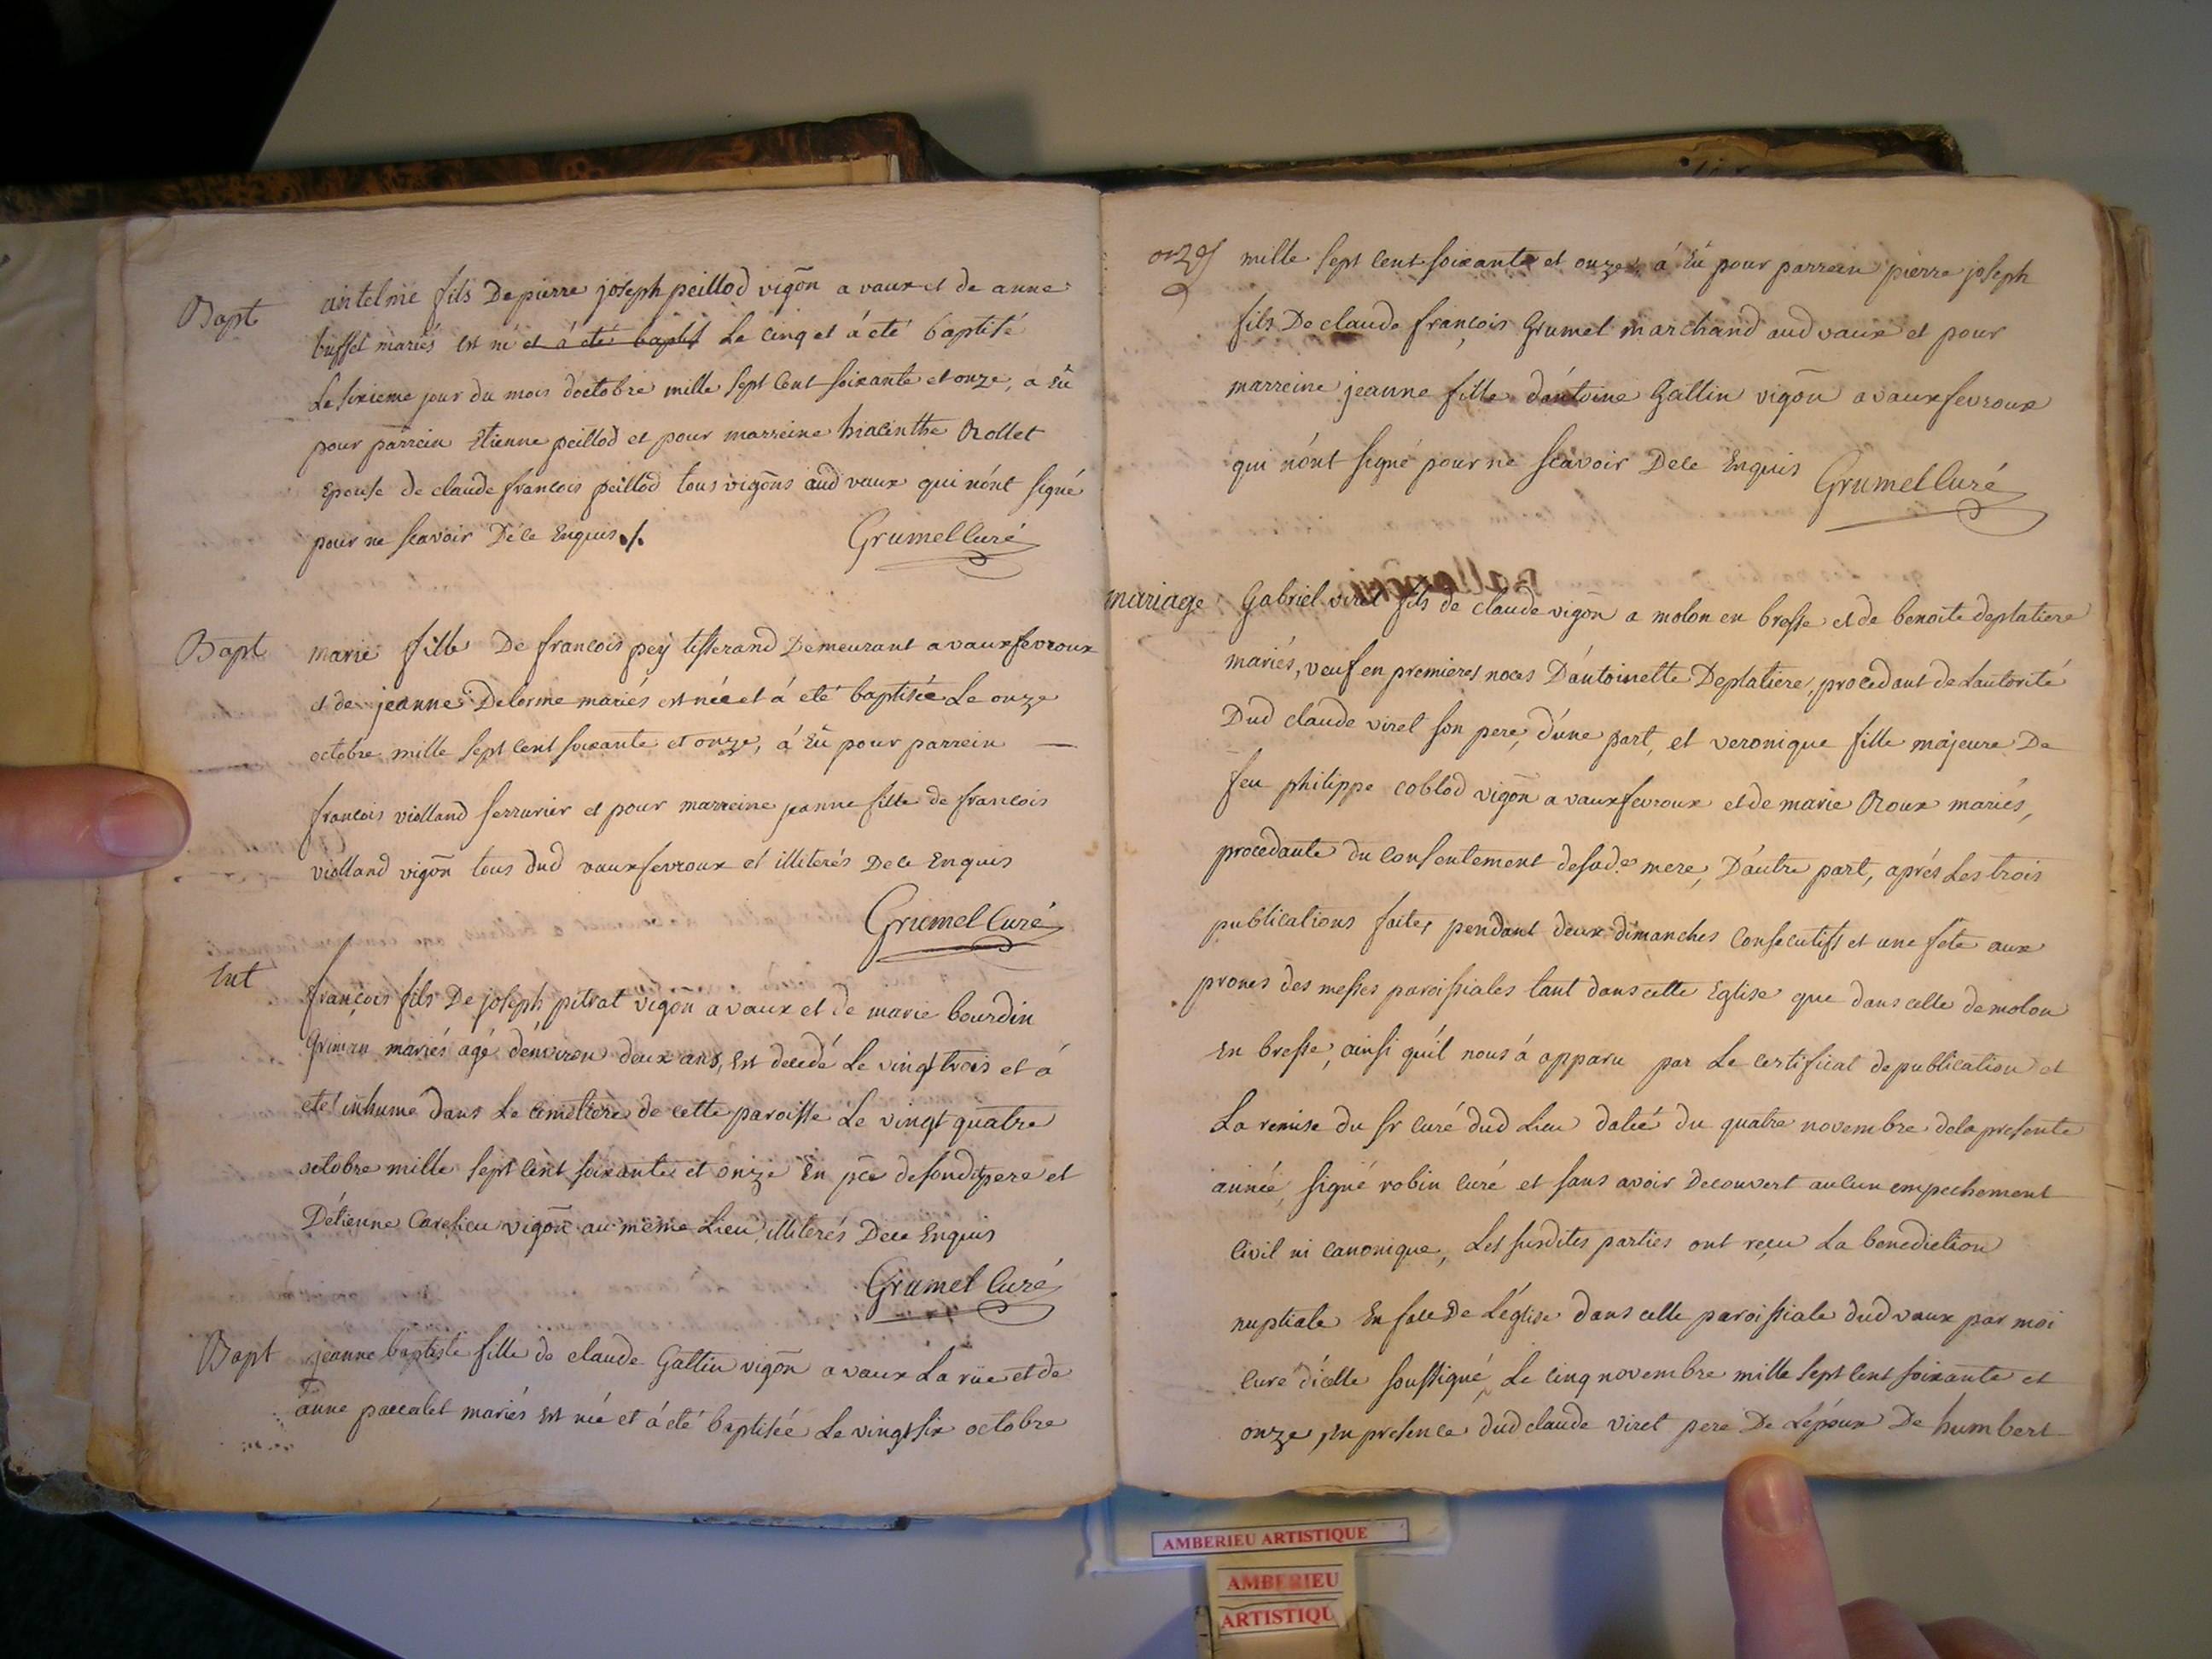 Bapt antelme fils De pierre joseph peillod vigõn a vaux et de anne
buffet mariés est né et á été baptisé Le cinq et á été baptisé
Le sixieme jour du mois d'octobre mille sept cent soixante et onze, a Eû
pour parrein Etienne peillod et pour marreine hiacinthe Rollet
Epouse de claude francois peillod tous vigõns aud vaux qui n'ont signé
pour ne scavoir De ce Enquis ./. Grumel Curé
Bapt marie fille De francois pey tisserand Demeurant a vauxfevroux
et de jeanne Delorme mariés est née et á eté baptisée Le onze
octobre mille sept cent soixante et onze, á Eû pour parrein —
francois violland serrurier et pour marreine jeanne fille de francois
violland vigõn tous dud vauxfevroux et illiterés De ce Enquis
Grumel Curé
Ent françois fils De joseph pitrat vigõn a vaux et de marie bourdin
mariés agé d'environ deux ans, Est decedé Le vingt trois et á
eté inhumé dans Le cimetiere de cette paroisse Le vingt quatre
octobre mille sept cent soixante et onze En pce de sondit pere et
D'étienne vigõn au meme Lieu, illiterés De ce Enquis
Grumel Curé
Bapt jeanne baptiste fille de claude Gallin vigõn a vaux La rüe et de
anne paccalet mariés Est née et á eté baptisée Le vingt six octobre
mille sept cent soixante et onze, á Eû pour parrein pierre joseph
fils De claude françois Grumel marchand aud vaux et pour
marreine jeanne fille d'antoine Gallin vigõn a vauxfevroux
qui n'ont signé pour ne scavoir De ce Enquis Grumel Curé
mariage Gabriel viret fils de claude vigõn a molon en bresse et de benoite deplatiere
mariés, veuf en premieres noces D'antoinette Deplatiere, procedant de L'autorité
Dud claude viret son pere, d'une part, et veronique fille majeure De
feu philippe coblod vigõn a vauxfevroux et de marie Roux mariés,
procedante du consentement de sade mere, D'autre part, aprés Les trois
publications faites pendant deux dimanches consecutifs et une fete aux
prones des messes paroissiales tant dans cette Eglise que dans celle de molon
En bresse, ainsi qu'il nous á apparu par Le certificat de publication et
La remise du Sr curé dud Lieu datté du quatre novembre de la presente
année, signé robin curé et sans avoir decouvert aucun empechement
civil ni canonique, Les susdites parties ont reçu La benediction
nuptiale En face De L'église dans celle paroissiale dud vaux par moi
curé d'icelle soussigné, Le cinq novembre mille sept cent soixante et
onze, En presence dud claude viret pere De L'époux De humbert
AMBERIEU ARTISTIQUE
AMBERIEU
ARTISTIQU